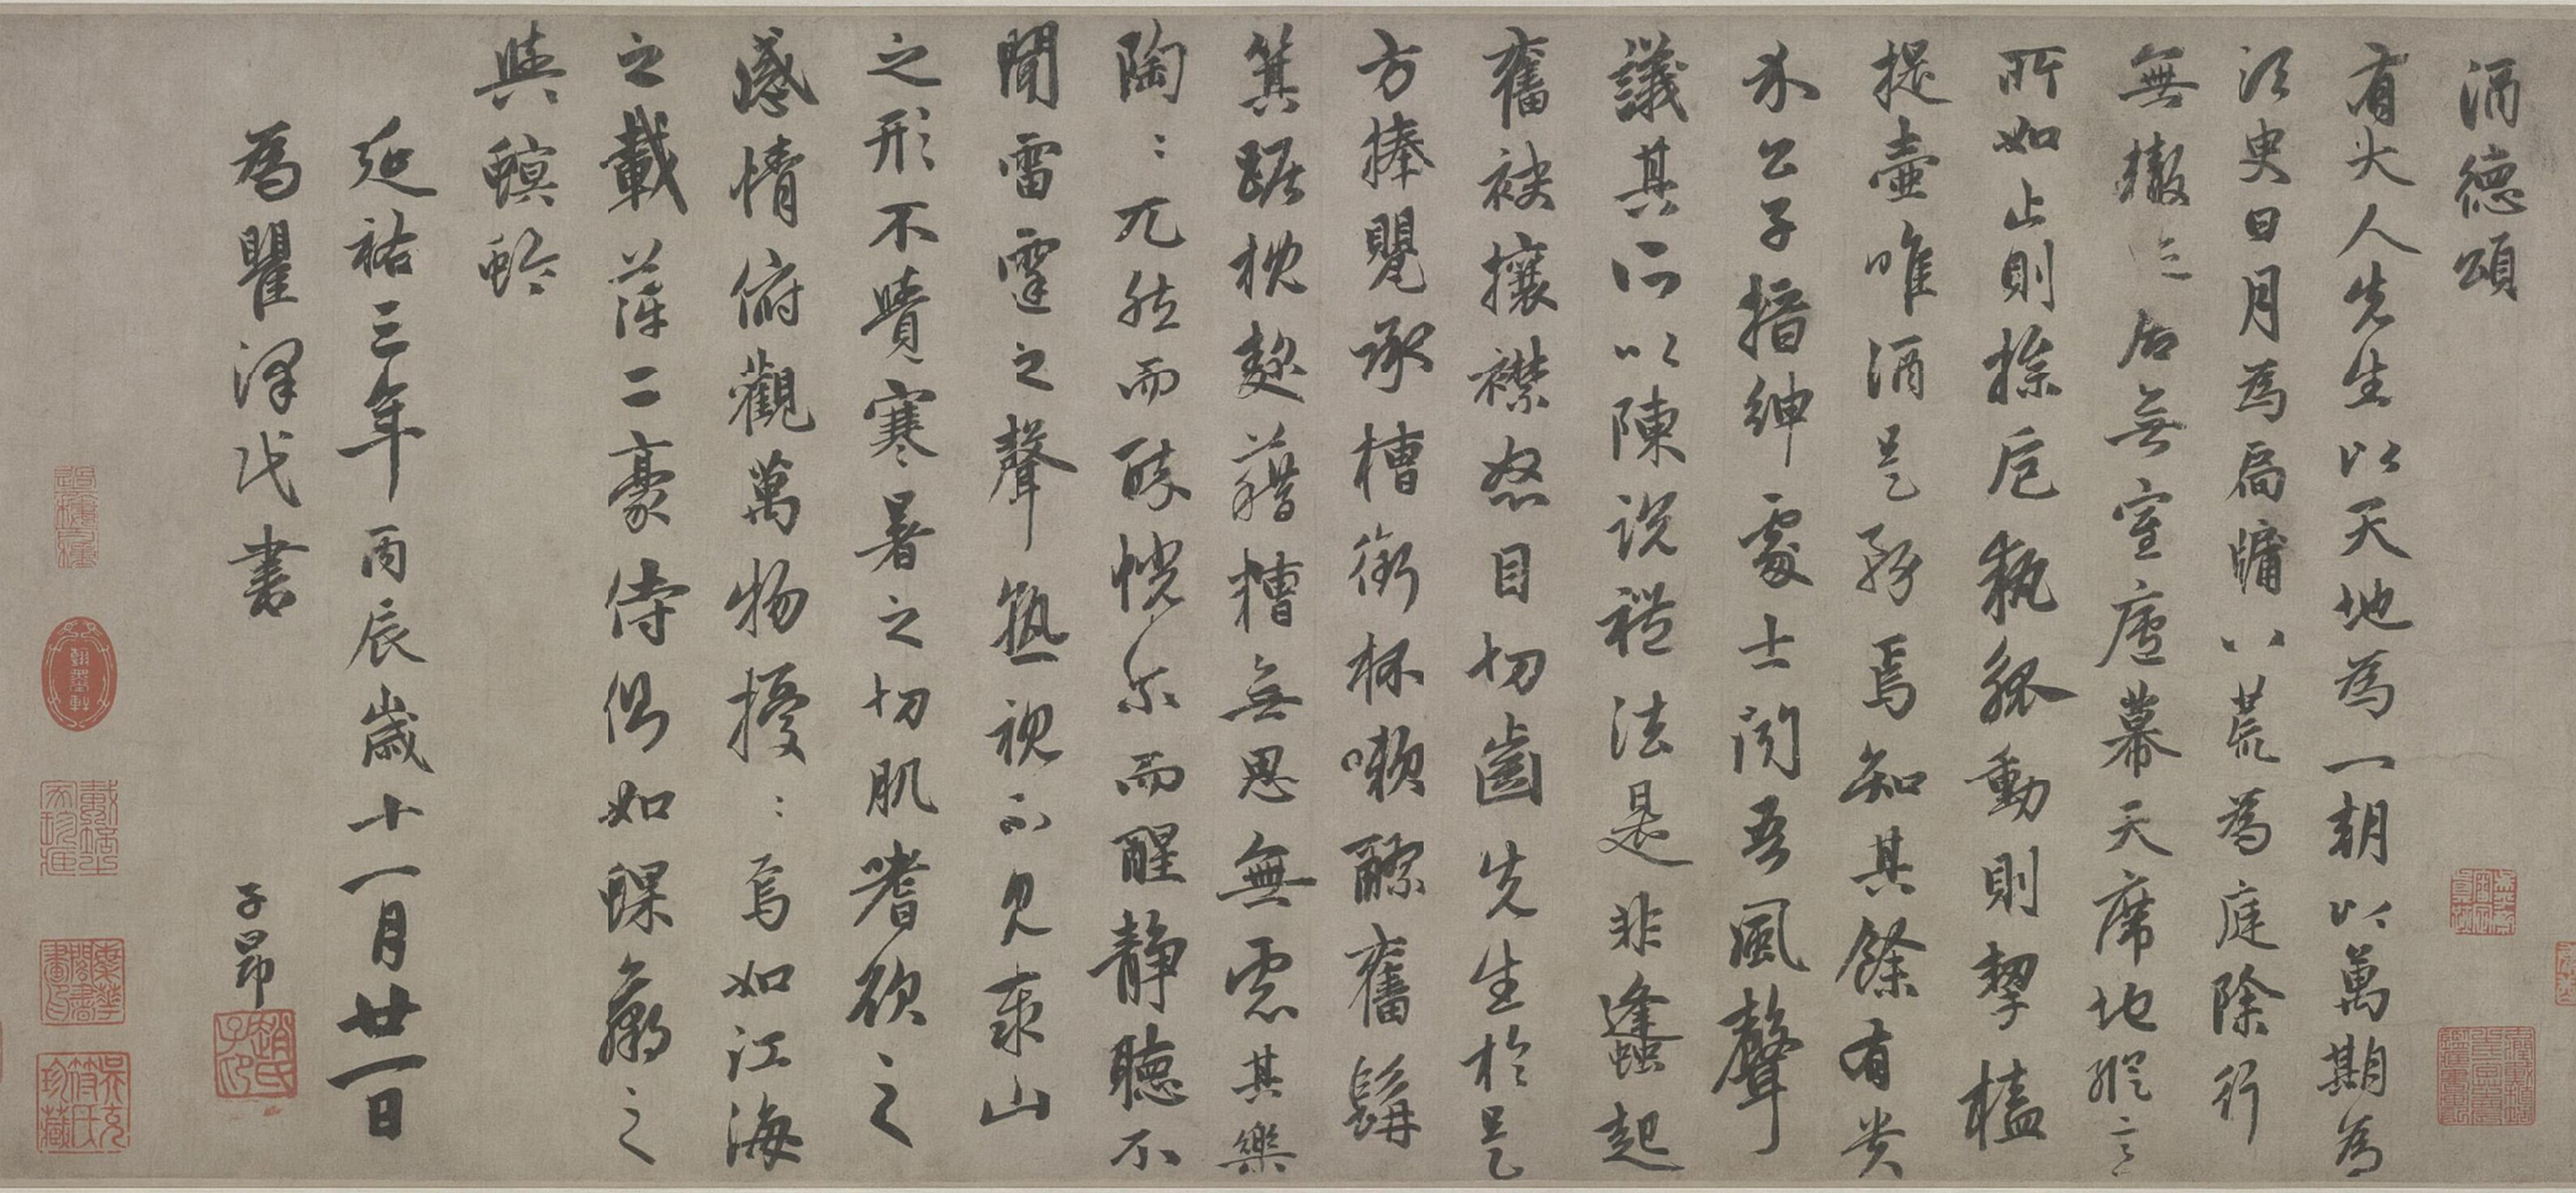 酒德頌
有大人先生以天地為一朝以萬期為
須臾日月為扃牖八荒為庭除行
無轍迹居無室廬幕天席地縱意
所如止則操卮執觚動則挈榼
提壺唯酒是務焉知其餘有貴
介公子搢紳處士聞吾風聲
議其所以陳說禮法是非蠭起
奮袂攘襟怒目切齒先生於是
方捧甖承槽銜杯漱醪奮髯
箕踞枕麴藉糟無思無慮其樂
陶〻兀然而醉恍尔而醒靜聽不
聞雷霆之聲熟視不見泰山
之形不覺寒暑之切肌嗜欲之
感情俯觀萬物擾〻焉如江海
之載萍二豪侍側如蜾蠃之
與螟蛉
延祐三年丙辰歲十一月廿一日
為瞿澤民書
子昂
趙氏子昂